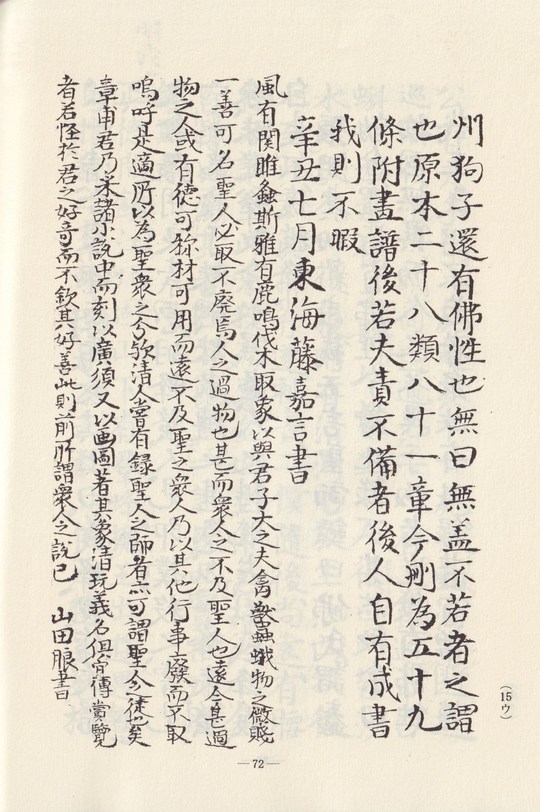 州狗子還有佛性也無曰無盖不若者之謂
也原本二十八類八十一章今刪為五十九
條附畫譜後若夫責不備者後人自有成書
我則不暇
辛丑七月東海藤嘉言書
風有関雎螽斯雅有鹿鳴伐木取象以與君子大之夫禽獸蟲蛾物之微賤
一善可名聖人必取不廢焉人之過物也甚而衆人之不及聖人也遠今甚過
物之人或有德可称材可用而遠不及聖之衆人乃以其他行事廢而不取
嗚呼是適所以為聖衆之分歟清人嘗有録聖人之師者亦可謂聖人之徒也矣
章甫君乃采諸小説中而刻以廣須又以画圖著其象清玩義名俱宜傳賞覽
者若怪於君之好奇而不欽其好善此則前所謂衆人之說已　山田
書
(15ウ)
—72—